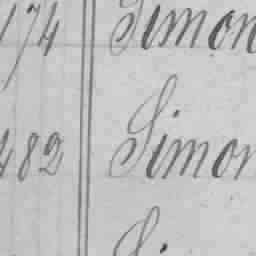 174 Simon
482 Simon